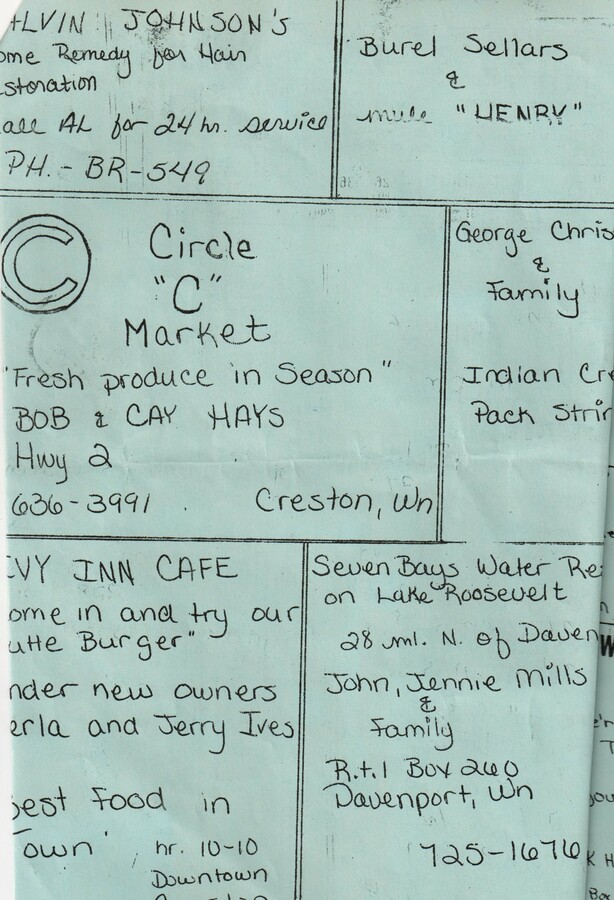 ALVIN JOHNSON's
ome Remedy for Hair
storation
all AL for 24 hr. service
PH. - BR-549
Burel Sellars
&
mule "HENRY"
C
Circle
"C"
Market
"Fresh produce in Season"
BOB & CAY HAYS
Hwy 2
636-3991 Creston, Wn
George Chris
&
Family
Indian Cre
Pack Strin
EVY INN CAFE
ome in and try our
utte Burger"
nder new owners
erla and Jerry Ives
Best Food in
Town'
hr. 10-10
Downtown
Seven Bays Water Re
on Lake Roosevelt
28 ml. N. of Daven
John, Jennie Mills
&
Family
R.t.1 Box 260
Davenport, Wn
725-1676